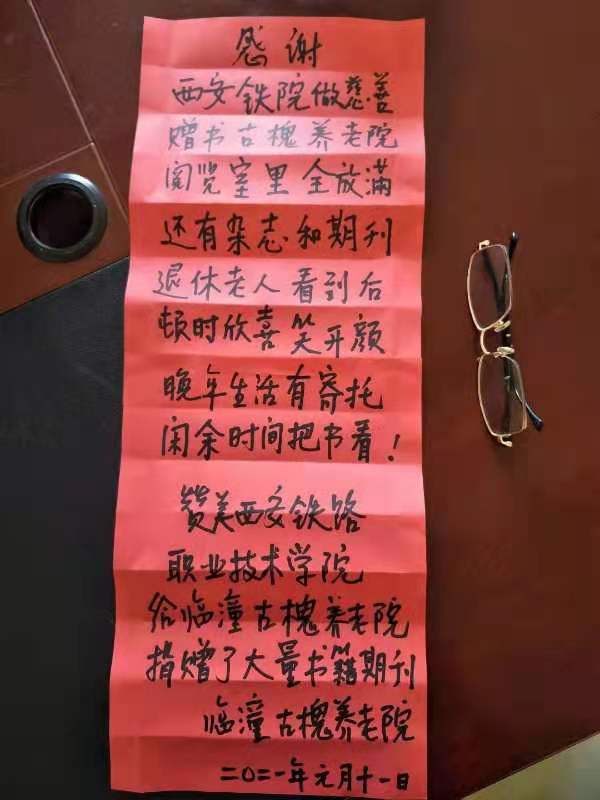 感谢
西安铁院做慈善
赠书古槐养老院
阅览室里全放满
还有杂志和期刊
退休老人看到后
顿时欣喜笑开颜
晚年生活有寄托
闲余时间把书看！
赞美西安铁路
职业技术学院
给临潼古槐养老院
捐赠了大量书籍期刊
临潼古槐养老院
二〇二一年元月十一日